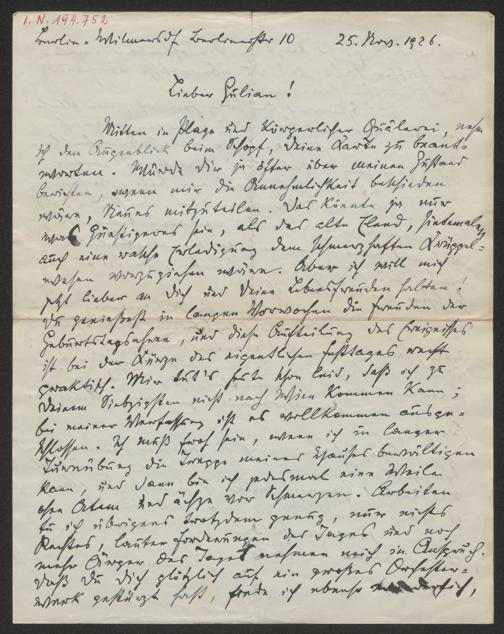 I. N. 194.752
Berlin-Wilmersdf Berlinerstr 10 25. Nov. 1926.
Lieber Julian!
Mitten in Plage und körperlicher Quälerei, nehm
ich den Augenblick beim Schopf, Deine Karte zu beant-
worten. Würde Dir ja öfter über meinen Zustand
berichten, wenn mir die Annehmlichkeit beschieden
wäre, Neues mitzuteilen. Das könnte ja nur
was Günstigeres sein, als das alte Elend, sintemalen
auch eine rasche Erledigung dem schmerzhaften Krüppel-
wesen vorzuziehen wäre. Aber ich will mich
jetzt lieber an Dich und Deine Lebensfreuden halten!
Du genießest in langen Vorwochen die Freuden der
Geburtstagsfeiern, und diese Aufteilung des Ereignisses
ist bei der Kürze des eigentlichen Festtages recht
praktisch. Mir tut's heute schon leid, daß ich zu
Deinem Siebzigsten nicht nach Wien kommen kann;
bei meiner Verfassung ist es vollkommen ausge-
schlossen. Ich muß froh sein, wenn ich in langer
Turnübung die Treppe meines Hauses bewältigen
kann, und dann bin ich jedesmal eine Weile
ohne Atem und ächze vor Schmerzen. Arbeiten
tu ich übrigens trotzdem genug, nur nichts
Rechtes, lauter Forderungen des Tages und noch
mehr Ärger des Tages nehmen mich in Anspruch.
Daß Du Dich plötzlich auf ein großes Orchester-
werk gestürzt hast, finde ich ebenso